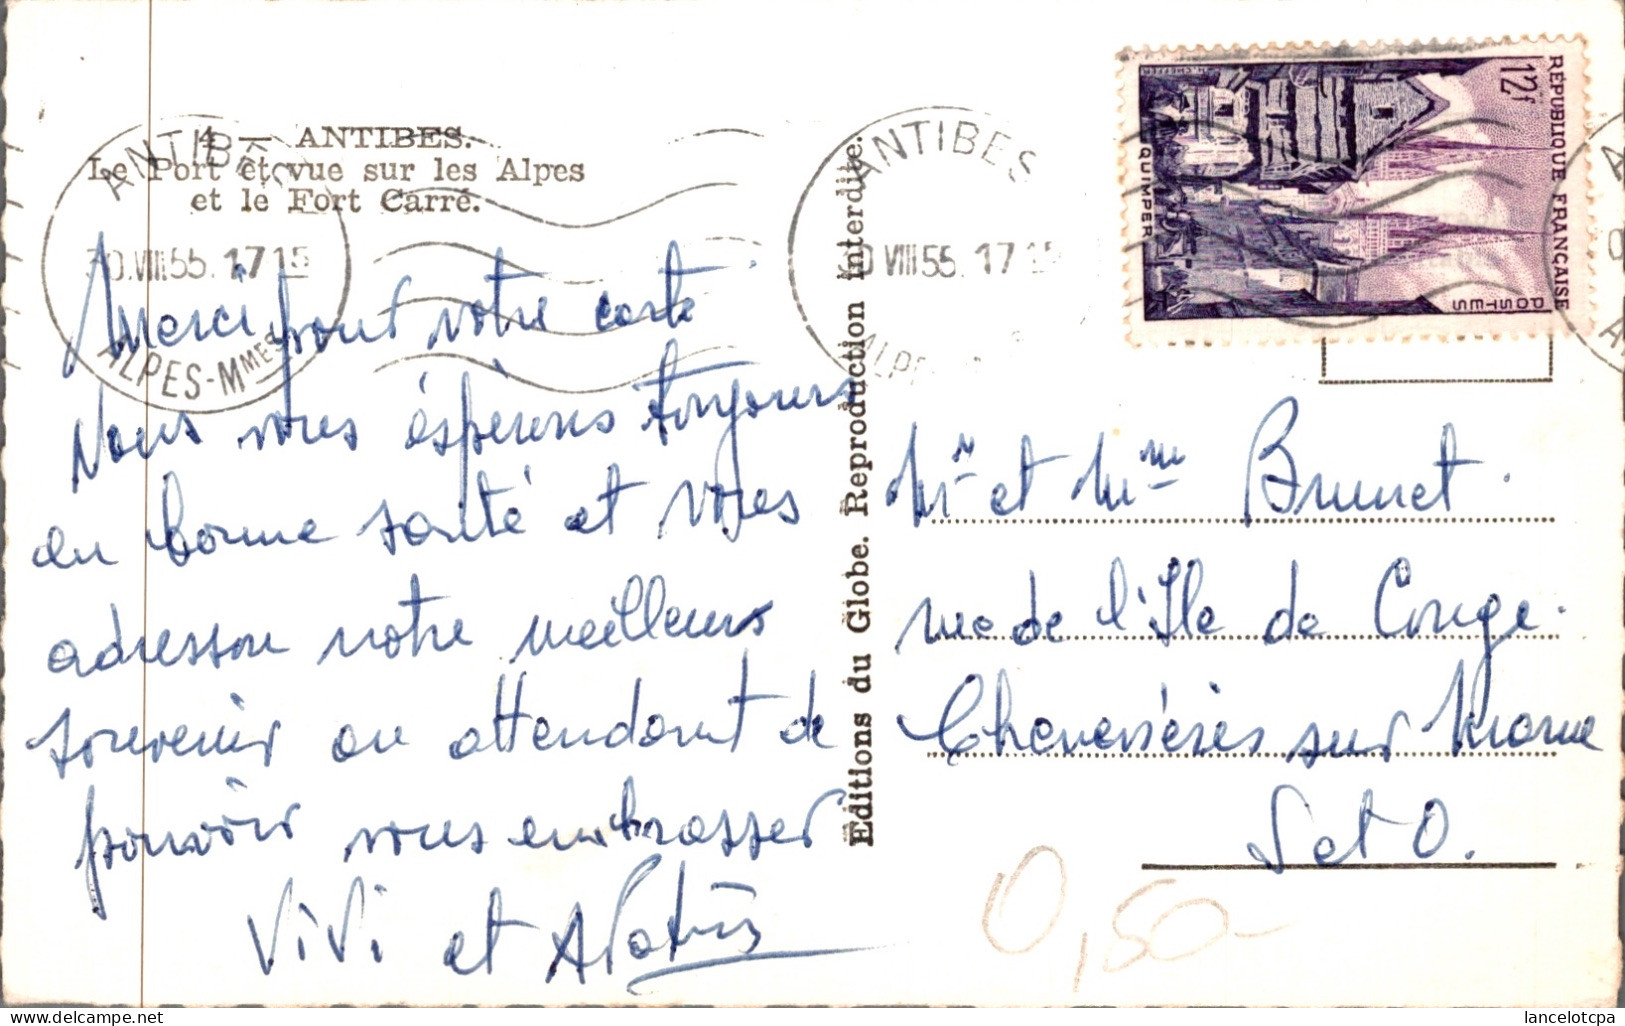 4. — ANTIBES.
Le Port et vue sur les Alpes
et le Fort Carré.
ANTIBES
30 VIII 55. 17 15
ALPES-Mmes
ANTIBES
0 VIII 55. 17 15
ALPES
REPUBLIQUE FRANÇAISE
12f
POSTES
QUIMPER
Editions du Globe. Reproduction interdite.
Merci pour votre carte
Nous vous éspèrons toujours
en bonne santé et vous
adresson notre meilleurs
souvenir en attendant de
pouvoir vous embrasser
ViVi et
Mr et Mme Brunet.
rue de l'Ile de Conge.
Chenevières sur Marne
S et O.
0,50
lancelotcpa